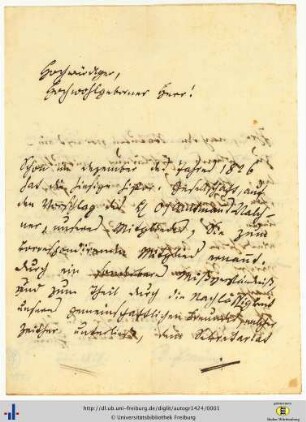 Hochwürdiger,
Hochwohlgeborner Herr!
Schon im Dezember des Jahres 1806
hat die hiesige Gesellschaft, auf
den Vorschlag des H
unsers Mitgliedes, Sie zum
correspondirenden Mitglied ernannt.
Durch ein Mißverständniß
und zum Theil durch die Nachläßigkeit
unsers gemeinschaftlichen Freundes, welcher
zeither unterließ, dem Sekretariat
http://dl.ub.uni-freiburg.de/diglit/autogr1424/0001
© Universitätsbibliothek Freiburg
Baden-Württemberg